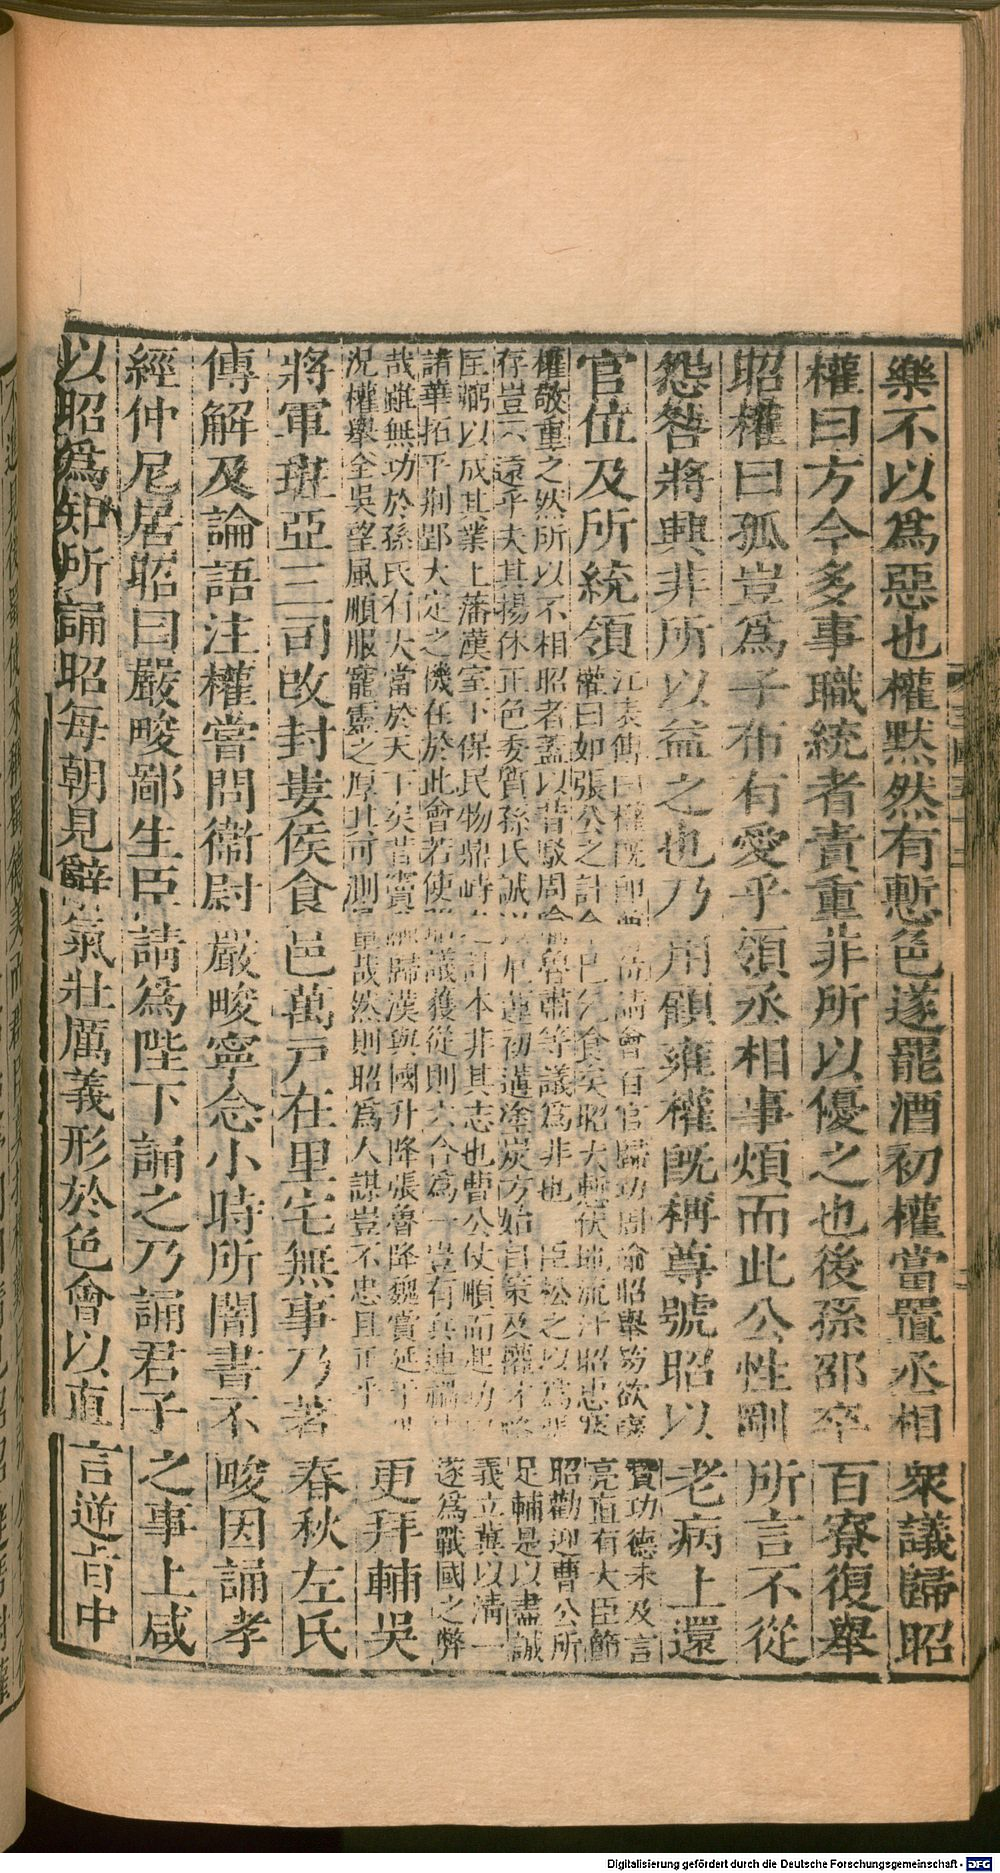 樂不以爲惡也權默然有慙色遂罷酒初權當置丞相衆議歸昭
權曰方今多事職統者責重非所以優之也後孫邵卒百寮復舉
昭權曰孤豈爲子布有愛乎領丞相事煩而此公性剛所言不從
怨咎將興非所以益之也乃用顧雍權旣稱尊號昭以老病上還
官位及所統領
江表傳曰權旣即尊位請會百官歸功周瑜昭舉笏欲襃贊功德未及言
權曰如張公之計今已乞食矣昭大慙伏地流汗昭忠謇亮直有大臣節
權敬重之然所以不相昭者蓋以昔駮周瑜魯肅等議爲非也 臣松之以爲張昭勸迎曹公所
存豈不遠乎夫其揚休正色委質孫氏誠以厄運初遘塗炭方始自策及權才略足輔是以盡誠
匡弼以成其業上藩漢室下保民物鼎峙之計本非其志也曹公仗順而起功以義立冀以清一
諸華拓平荆郢大定之機在於此會若使昭議獲從則六合爲一豈有兵連禍結遂爲戰國之弊
哉雖無功於孫氏有大當於天下矣昔竇融歸漢與國升降張魯降魏賞延于世
況權舉全吳望風順服寵靈之厚其可測量哉然則昭爲人謀豈不忠且正乎
更拜輔吳
將軍班亞三司改封婁侯食邑萬戸在里宅無事乃著春秋左氏
傳解及論語注權嘗問衞尉嚴畯寧念小時所闇書不畯因誦孝
經仲尼居昭曰嚴畯鄙生臣請爲陛下誦之乃誦君子之事上咸
以昭爲知所誦昭每朝見辭氣壯厲義形於色曾以直言逆旨中
Digitalisierung gefördert durch die Deutsche Forschungsgemeinschaft - DFG